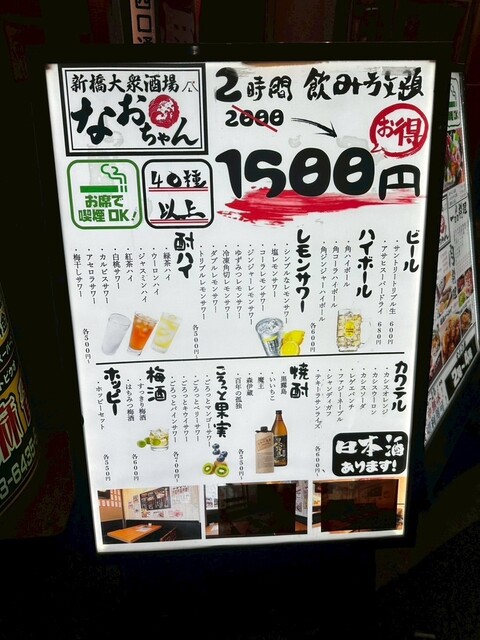 新橋大衆酒場
なおちゃん
2時間 飲み放題
2000
お得
1500円
お席で
喫煙OK!
40種
以上
ビール
・サントリートリプル生 600円
・アサヒスーパードライ 680円
ハイボール
・角ハイボール
・コーラハイボール
・角ジンジャーハイボール
各600円
レモンサワー
・シンプルなレモンサワー
・塩レモンサワー
・コーラレモンサワー
・ジンジャーレモンサワー
・ゆずみつレモンサワー
・冷凍角切レモンサワー
・ダブルレモンサワー
・トリプルレモンサワー
各500円~
酎ハイ
・緑茶ハイ
・ウーロンハイ
・ジャスミンハイ
・紅茶ハイ
・白桃サワー
・カルピスサワー
・アセロラサワー
・梅干しサワー
各500円~
カクテル
・カシスオレンジ
・カシスウーロン
・カシスソーダ
・レゲエパンチ
・ファジーネーブル
・シャンディガフ
・テキーラサンライズ
各600円~
焼酎
・黒霧島
・いいちこ
・魔王
・森伊蔵
・百年の孤独
各500円~
ごろっと果実
・ごろっとマンゴーサワー
・ごろっとベリーサワー
・ごろっとキウイサワー
・ごろっとパインサワー
各700円~
梅酒
・すっきり梅酒
・はちみつ梅酒
各600円~
ホッピー
・ホッピーセット
各550円~
日本酒
あります!